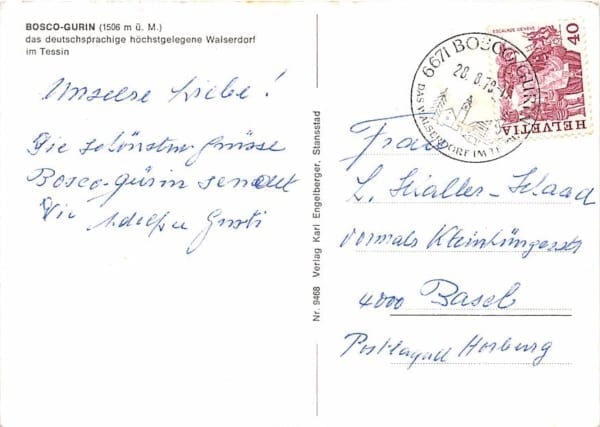 BOSCO-GURIN (1506 m ü. M.)
das deutschsprachige höchstgelegene Walserdorf
im Tessin
Liebe!
Die schönsten Grüsse
Bosco-Gurin sendet
Die Gusti
Nr. 9468 Verlag Karl Engelberger, Stansstad
6671 BOSCO-GURIN
DAS WALSERDORF IM
ESCALADE GENÈVE
40
HELVETIA
Frau
L. Schaad
vormals
4000 Basel
Horburg